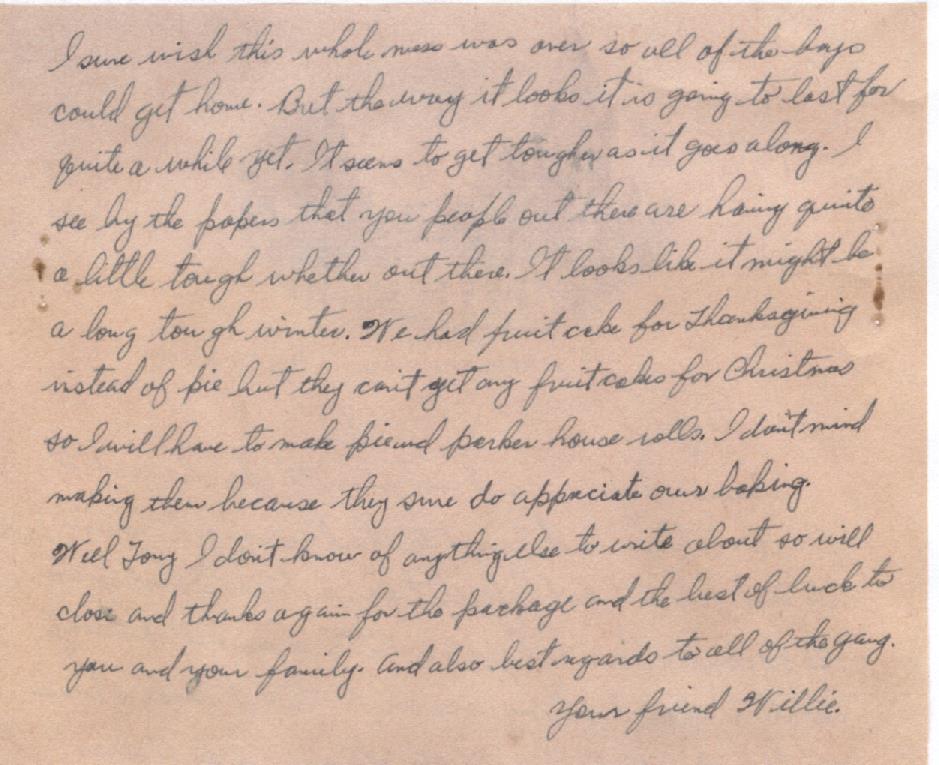 I sure wish this whole mess was over so all of the boys
could get home. But the way it looks it is going to last for
quite a while yet. It seems to get tougher as it goes along. I
see by the papers that you people out there are having quite
a little tough whether out there. It looks like it might be
a long tough winter. We had fruit cake for Thanksgiving
instead of pie but they can't get any fruit cakes for Christmas
so I will have to make pie and parker house rolls. I don't mind
making them because they sure do appreciate our baking.
Well Tony I don't know of anything else to write about so will
close and thanks again for the package and the best of luck to
you and your family. And also best regards to all of the gang.
Your friend Willie.